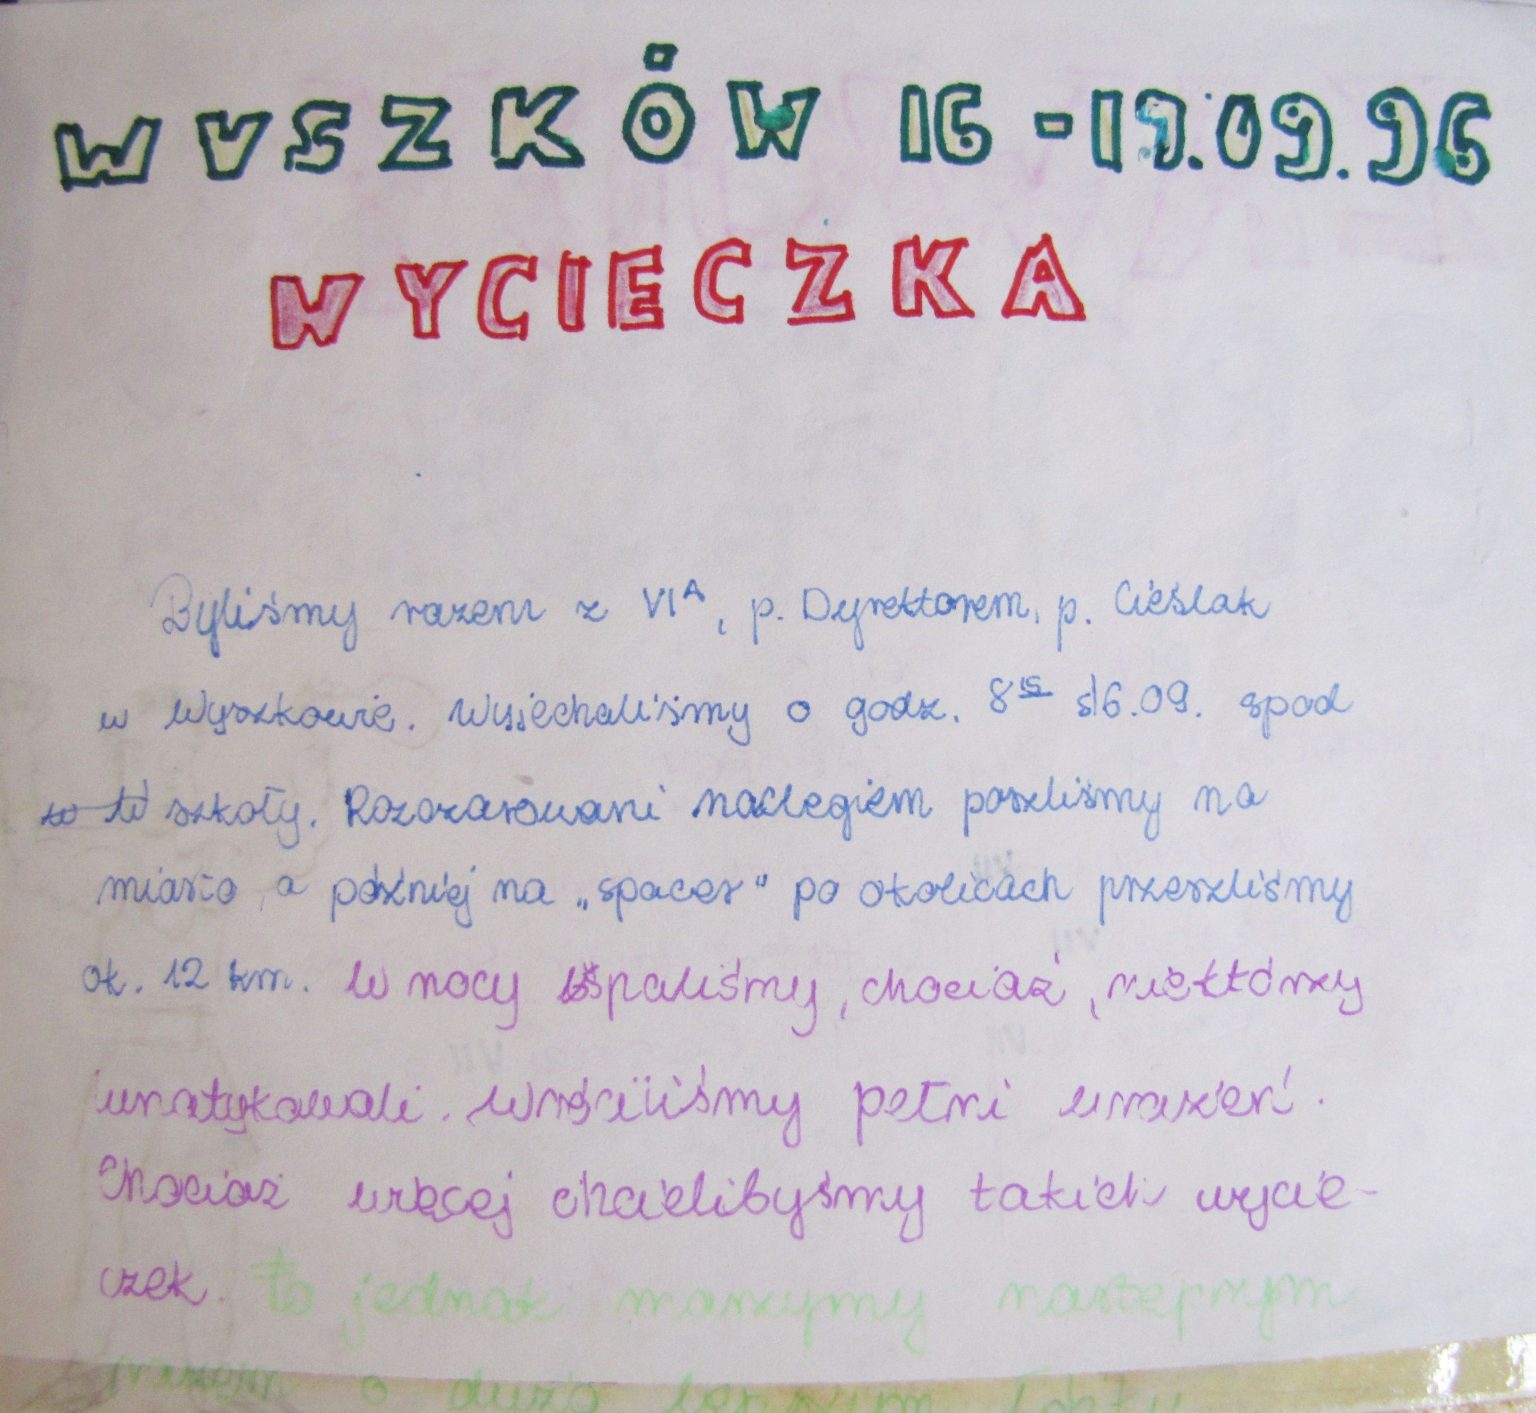 WYSZKÓW 16-19.09.96
WYCIECZKA
Byliśmy razem z VIA, p. Dyrektorem, p. Cieślak
w Wyszkowie. Wyjechaliśmy o godz. 8 16.09. spod
szkoły. Rozczarowani noclegiem poszliśmy na
miasto a później na „spacer" po okolicach przeszliśmy
ok. 12 km. W nocy spaliśmy, chociaż, niektórzy
wnatykowali. Wróciliśmy pełni wrażeń.
Chociaż więcej chcielibyśmy takich wycie-
czek. To jednak marzymy następnym
razem o dużo lepszym